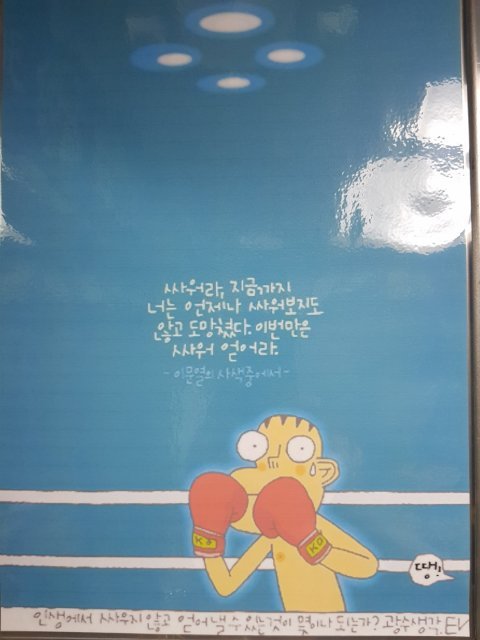 싸워라, 지금까지
너는 언제나 싸워보지도
않고 도망쳤다. 이번만은
싸워 얻어라.
- 이문열의 사색중에서 -
KO
KO
땡!
인생에서 싸우지 않고 얻어 낼 수 있는 것이 몇이나 되는가? 광수생각.